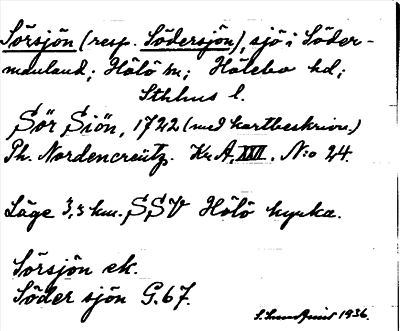 Sörsjön (resp. Södersjön), sjö i Söder-
manland; Hölö sn; Hölebo hd;
Sthlms l.
Sör Siön, 1722 (med kartbeskrivn.)
Ph. Nordencreütz. Kr. A. XXVI. N:o 24.
Läge 3,5 km. SSV Hölö kyrka.
Sörsjön ek.
Söder sjön G. 67.
1936.